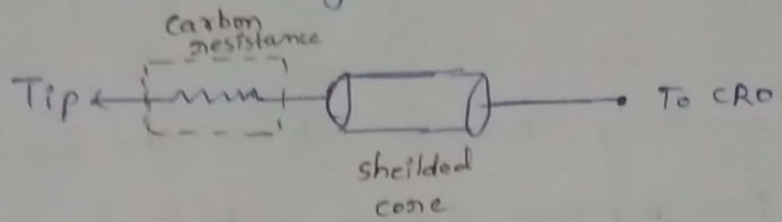 Carbon
resistance
Tip
To CRO
sheilded
core